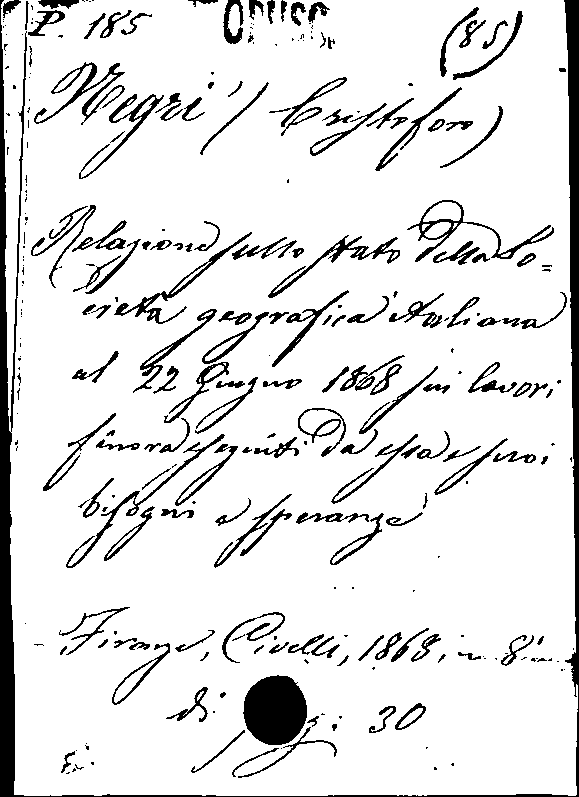 P. 185 OPUSC. (85)
Negri (Cristoforo)
Relazione sullo stato della So=
cietà geografica italiana
al 22 Giugno 1868 sui lavori
finora eseguiti da essa e suoi
bisogni e speranze
Firenze, Civelli, 1868, in 8°
di pag: 30